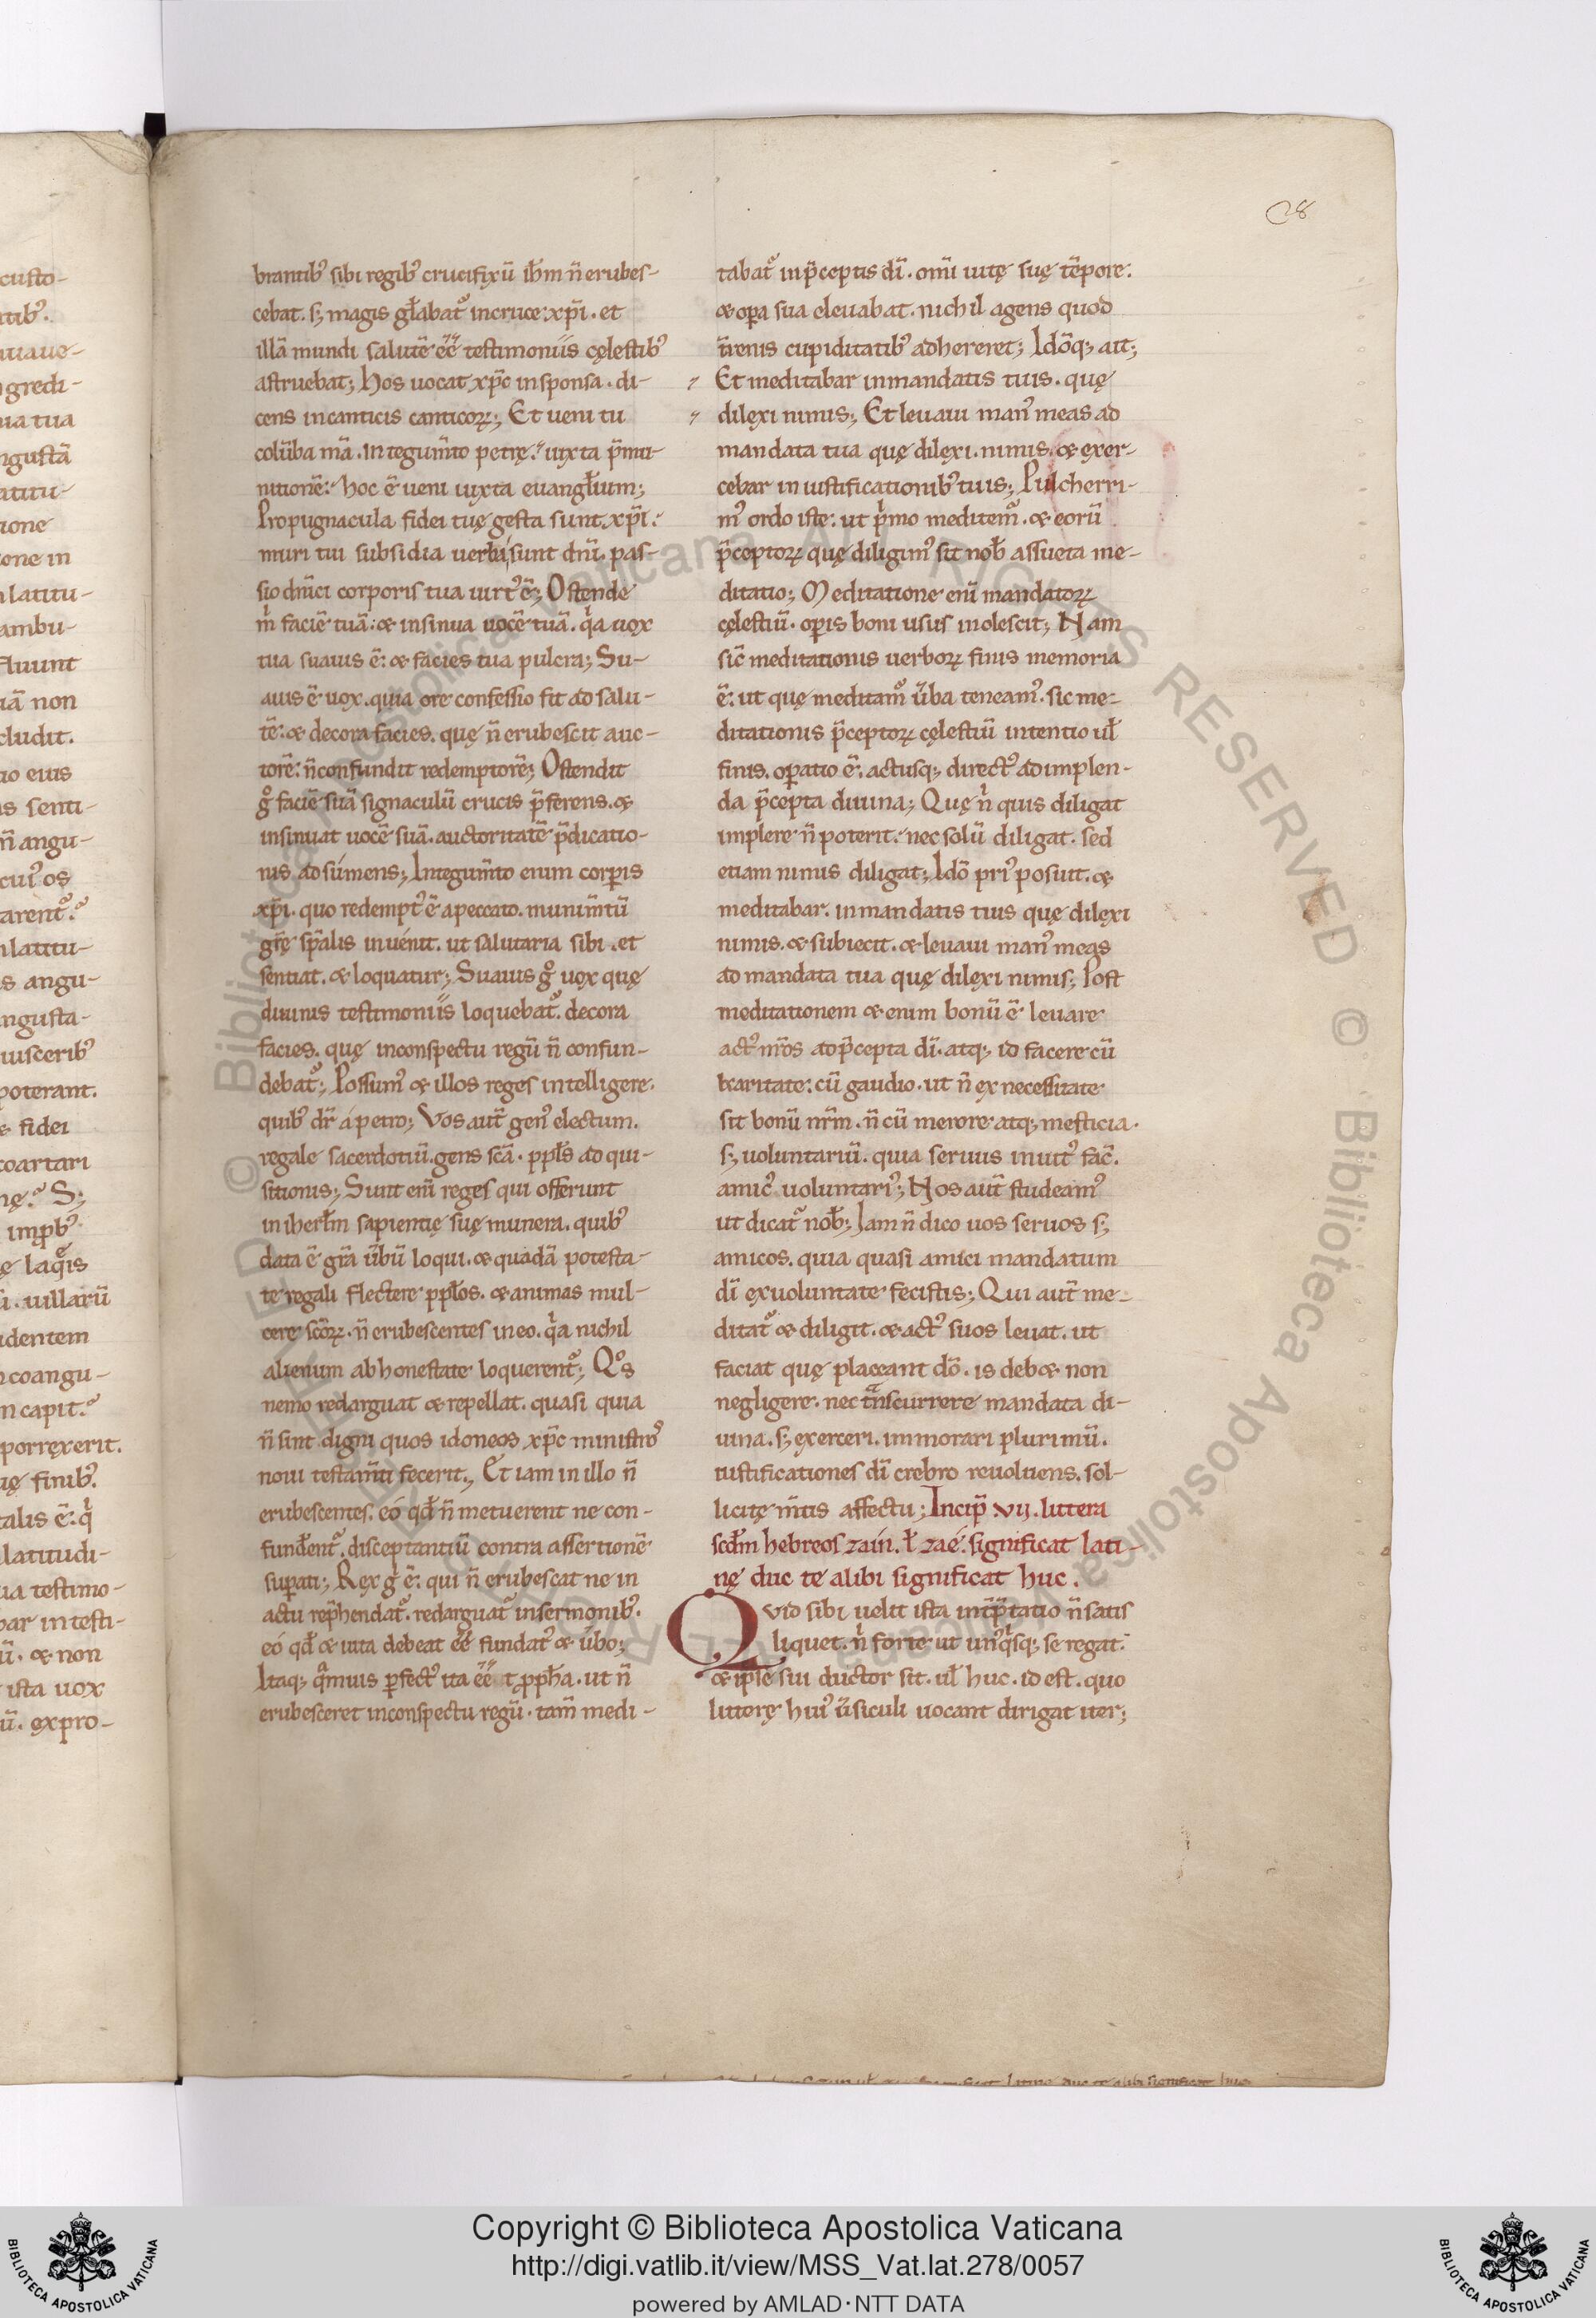 28
brantib᷒ sibi regib᷒ crucifixū ih̄m n̄ erubes-
cebat. s; magis gl̄abat᷒ in cruce xp̄i. et
illā mundi salutē eē̄ testimoniis cęlestib᷒
astruebat; hos uocat xp̄c in sponsa. di-
cens in canticis canticoꝝ; Et ueni tu
colūba mā. In tegum̄to petrę. iuxta p̄mu-
nitionē. hoc ē ueni iuxta euangl̄ium;
Propugnacula fidei tuę gesta sunt xp̄i.
muri tui subsidia uerbi, sunt dn̄i. pas-
sio dn̄ici corporis tua uirt᷒ ē; Ostende
m̄ faciē tuā. & insinua uocē tuā. q̄a uox
tua suauis ē. & facies tua pulcra; Su-
auis ē uox. quia ore confessio fit ad salu-
tē. & decora facies. quę n̄ erubescit auc-
torē. n̄ confundit redemptorē; Ostendit
g° faciē suā signaculū crucis p̄ferens. &
insinuat uocē suā. auctoritatē p̄dicatio-
nis adsúmens; Integum̄to enim corꝑis
xp̄i. quo redempt᷒ ē a peccato. munim̄tū
gr̄ę sp̄alis inuénit. ut salutaria sibi. et
sentiat. & loquatur; Suauis g° uox quę
diuinis testimoniis loquebat᷒. decora
facies. quę in conspectu regū n̄ confun-
debat᷒; Possum᷒ & illos reges intelligere.
quib᷒ dr̄ á petro; Vos aut̄ gen᷒ electum.
regale sacerdotiū. gens sc̄a. ppl̄s ad qui-
sitionis; Sunt eni̅ reges qui offerunt
in iherl̄m sapientię suę munera. quib᷒
data ē gr̄a ūbū loqui. & quadā potesta-
te regali flectere ppl̄os. & animas mul-
cere sc̄oꝝ. n̄ erubescentes in eo. q̄a nichil
alienum ab honestate loquerent᷒; Q°s
nemo redarguat & repellat. quasi quia
n̄ sint digni quos idoneos xp̄c ministros
noui testam̄ti fecerit., Et iam in illo n̄
erubescentes. eó qd̄ n̄ metuerent ne con-
fund̄ent᷒. disceptantiū contra assertionē
suꝑati; Rex g̊ ē. qui n̄ erubescat ne in
actu rep̄hendat᷒. redarguat᷒ in sermonib᷒.
eó qd̄ & uita debeat eē̄ fundat᷒ & ūbo;
Itaq; q̄muis ꝑfect᷒ ita eē̄t ꝓph̄a. ut n̄
erubesceret in conspectu regū. tam̄ medi-
tabat᷒ in p̄ceptis dī. omī uitę suę tēpore.
& oꝑa sua eleuabat. nichil agens quod
t̄renis cupiditatib᷒ adhereret; Idōq; ait;
Et meditabar in mandatis tuis. quę
dilexi nimis; Et leuaui man᷒ meas ad
mandata tua quę dilexi. nimis. & exer-
cebar in iustificationib᷒ tuis; Pulcherri-
m᷒ ordo iste. ut p̄mo meditem᷒. & eorū
p̄ceptoꝝ quę diligim᷒ sit nob̄ assueta me-
ditatio; Meditatione enī mandatoꝝ
cęlestiū. oꝑis boni usus inolescit; Nam
sic̄ meditationis uerboꝝ finis memoria
ē. ut quę meditam᷒ ūba teneam᷒. sic me-
ditationis p̄ceptoꝝ cęlestiū intentio ul̄
finis. oꝑatio ē. actusq; direct᷒ ad implen-
da p̄cepta diuina; Quę n̄ quis diligat
implere n̄ poterit. nec solū diligat. sed
etiam nimis diligat; Idō pri᷒ posuit. &
meditabar. in mandatis tuis quę dilexi
nimis. & subiecit. & leuaui man᷒ meas
ad mandata tua quę dilexi nimis; Post
meditationem & enim bonū ē leuare
act᷒ nr̄os ad p̄cepta dī. atq; id facere cū
karitate. cū gaudio. ut n̄ ex necessitate
sit bonū nr̄m. n̄ cū merore atq; mesticia.
s; uoluntariū. quia seruus inuit᷒ fac̄.
amic᷒ uoluntari᷒; Nos aut̄ studeam᷒
ut dicat᷒ nob̄; Iam n̄ dico uos seruos s;
amicos. quia quasi amici mandatum
dī ex uoluntate fecistis; Qui aut̄ me-
ditat᷒ & diligit. & act᷒ suos leuat. ut
faciat quę placeant dō. is deb& non
negligere. nec tn̄scurrere mandata di-
uina. s; exerceri. immorari plurimū.
iustificationes dī crebro reuoluens. sol-
licitę m̄tis affectu; Incip̄ .VII. littera
scd̄m hebreos zaín. ł zaé. significat lati-
nę duc te alibi significat huc.
Qvid sibi uelit ista int̄p̄tatio n̄ satis
liquet. n̄ forte ut un᷒q̄sq; se regat.
& ipse sui ductor sit. ul̄ huc. id est. quo
litterę hui᷒ ūsiculi uocant dirigat iter;
Copyright © Biblioteca Apostolica Vaticana
http://digi.vatlib.it/view/MSS_Vat.lat.278/0057
powered by AMLAD·NTT DATA